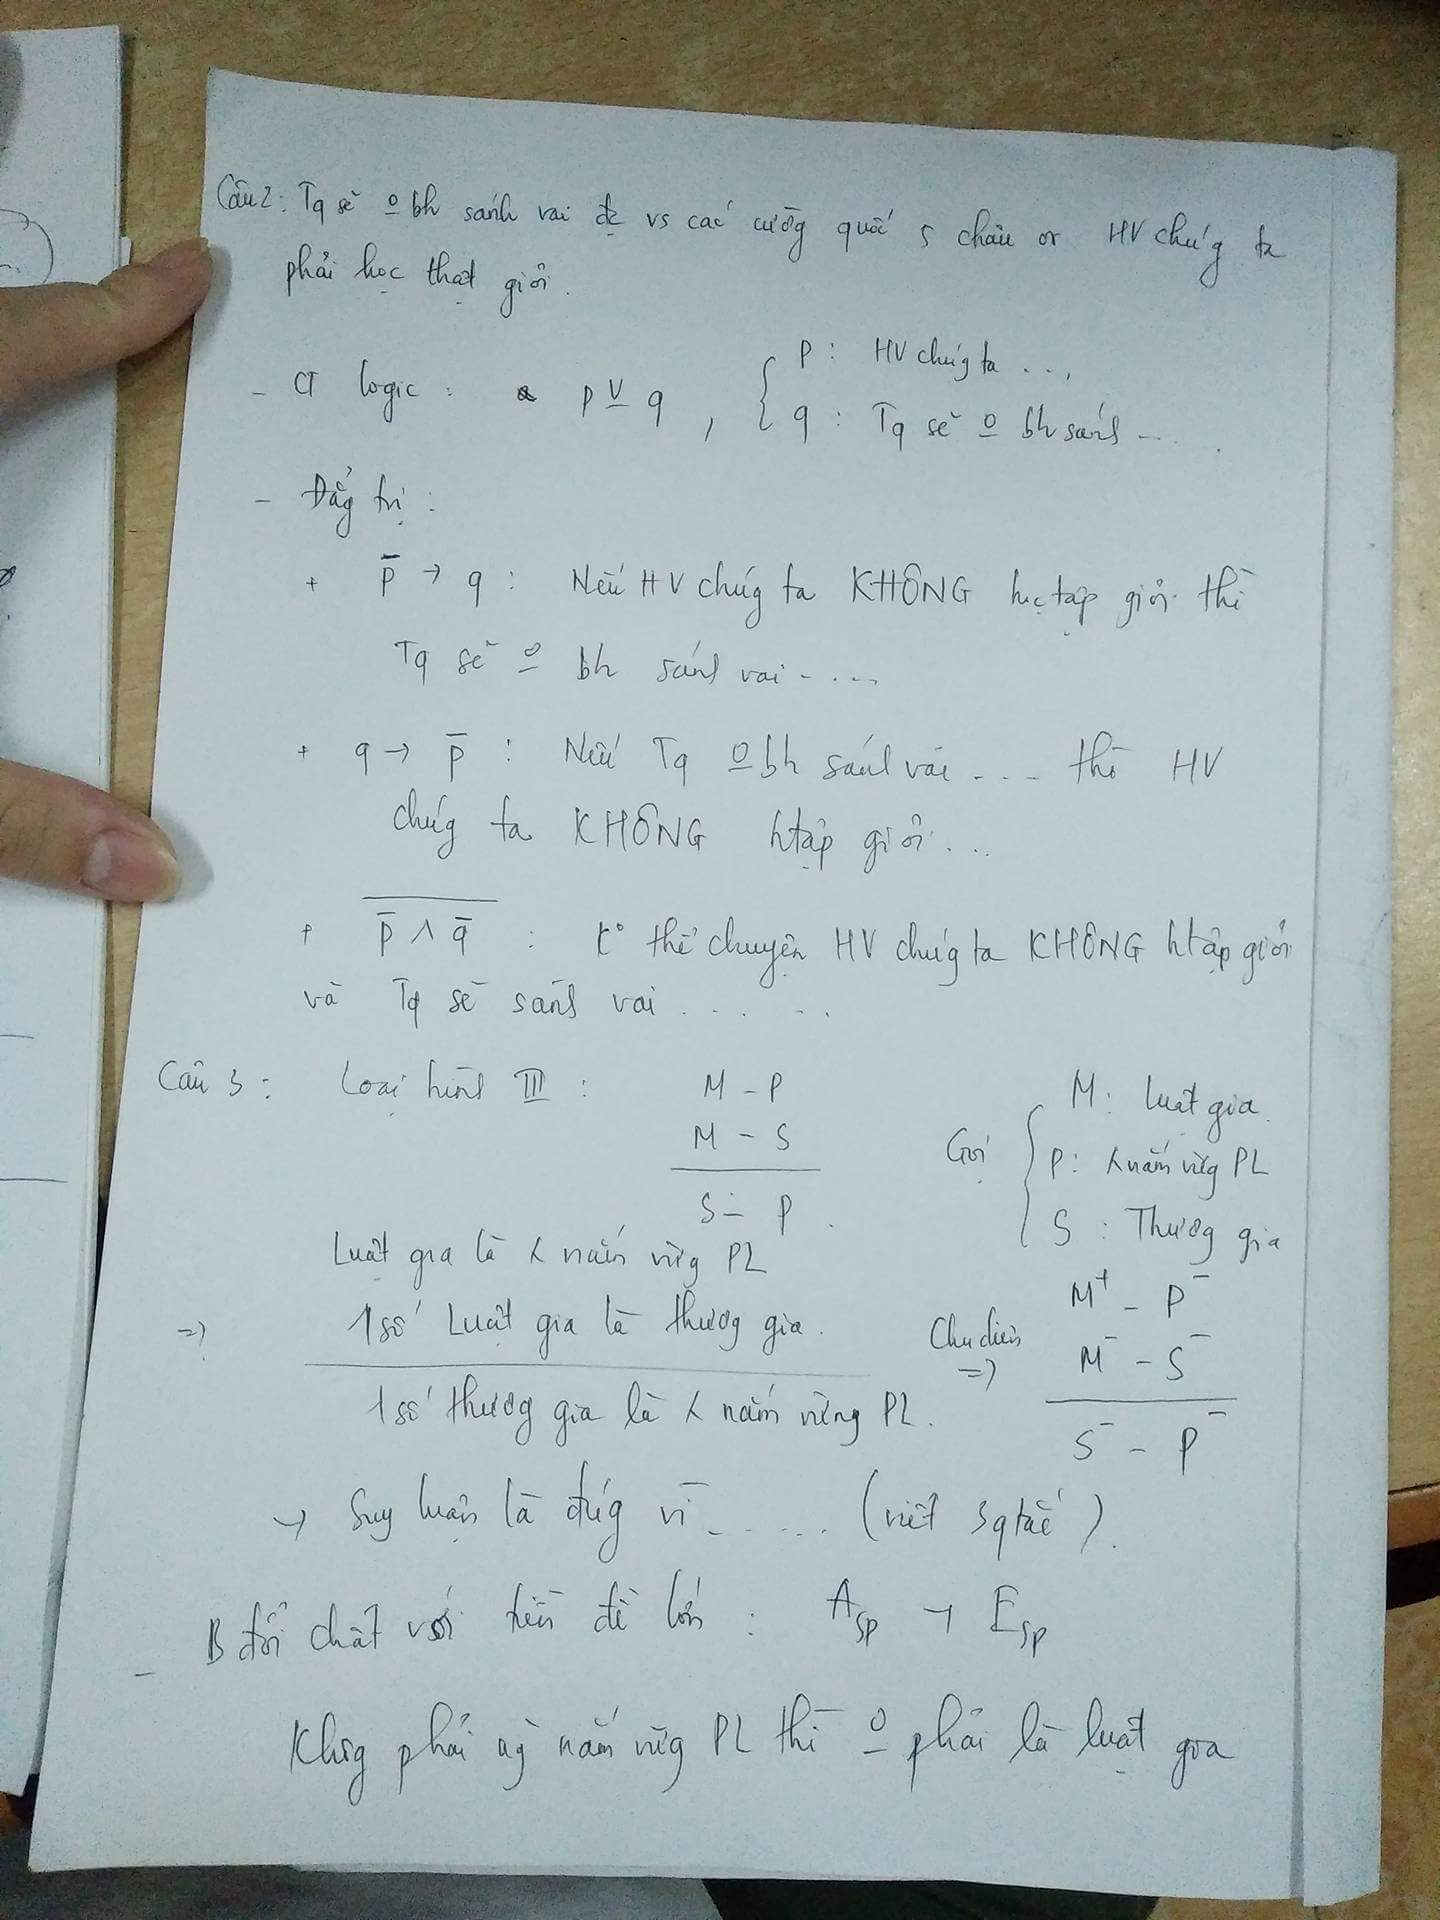 Câu 2: Tq sẽ o bh sánh vai đc vs các cường quốc 5 châu or HV chúg ta
phải học thật giỏi.
- CT logic: p ⊻ q, { p: HV chúg ta ...,
q: Tq sẽ o bh sánh ....
- Đẳg trị:
+ p̄ → q: Nếu HV chúg ta KHÔNG học tập giỏi thì
Tq sẽ o bh sánh vai ....
+ q → p̄: Nếu Tq o bh sánh vai .... thì HV
chúg ta KHÔNG htập giỏi...
+ p̄ ∧ q̄: K° thể chuyện HV chúg ta KHÔNG htập giỏi
và Tq sẽ sánh vai ......
Câu 3: Loại hình III: M - P
M - S
S - P.
Gọi { M: luật gia.
P: nắm vữg PL
S: Thươg gia
Luật gia là nắm vữg PL
=> 1 số Luật gia là thươg gia.
1 số thươg gia là nắm vững PL.
Chu diên => M⁺ - P⁻
M⁻ - S⁻
S⁻ - P⁻
→ Suy luận là đúg vì ...... (viết 3 qtắc).
- B đổi chất với tiền đề lớn: A_SP → E_SP
Khôg phải ng nắm vữg PL thì o phải là luật gia